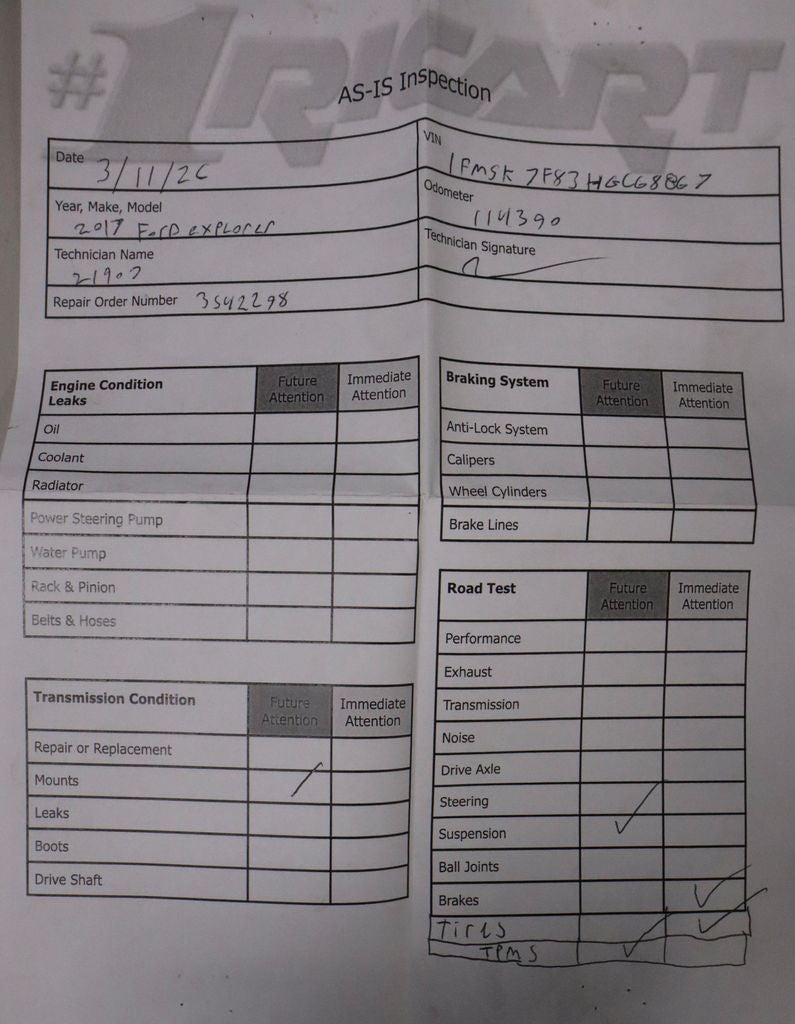 #1 RICART
AS-IS Inspection
Date 3/11/26
VIN 1FMSK7F83HGC68867
Year, Make, Model 2017 Ford explorer
Odometer 114390
Technician Name 21907
Technician Signature
Repair Order Number 3542298
Engine Condition Leaks Future Attention Immediate Attention
Oil
Coolant
Radiator
Power Steering Pump
Water Pump
Rack & Pinion
Belts & Hoses
Transmission Condition Future Attention Immediate Attention
Repair or Replacement
Mounts
Leaks
Boots
Drive Shaft
Braking System Future Attention Immediate Attention
Anti-Lock System
Calipers
Wheel Cylinders
Brake Lines
Road Test Future Attention Immediate Attention
Performance
Exhaust
Transmission
Noise
Drive Axle
Steering
Suspension
Ball Joints
Brakes
Tires
TPMS